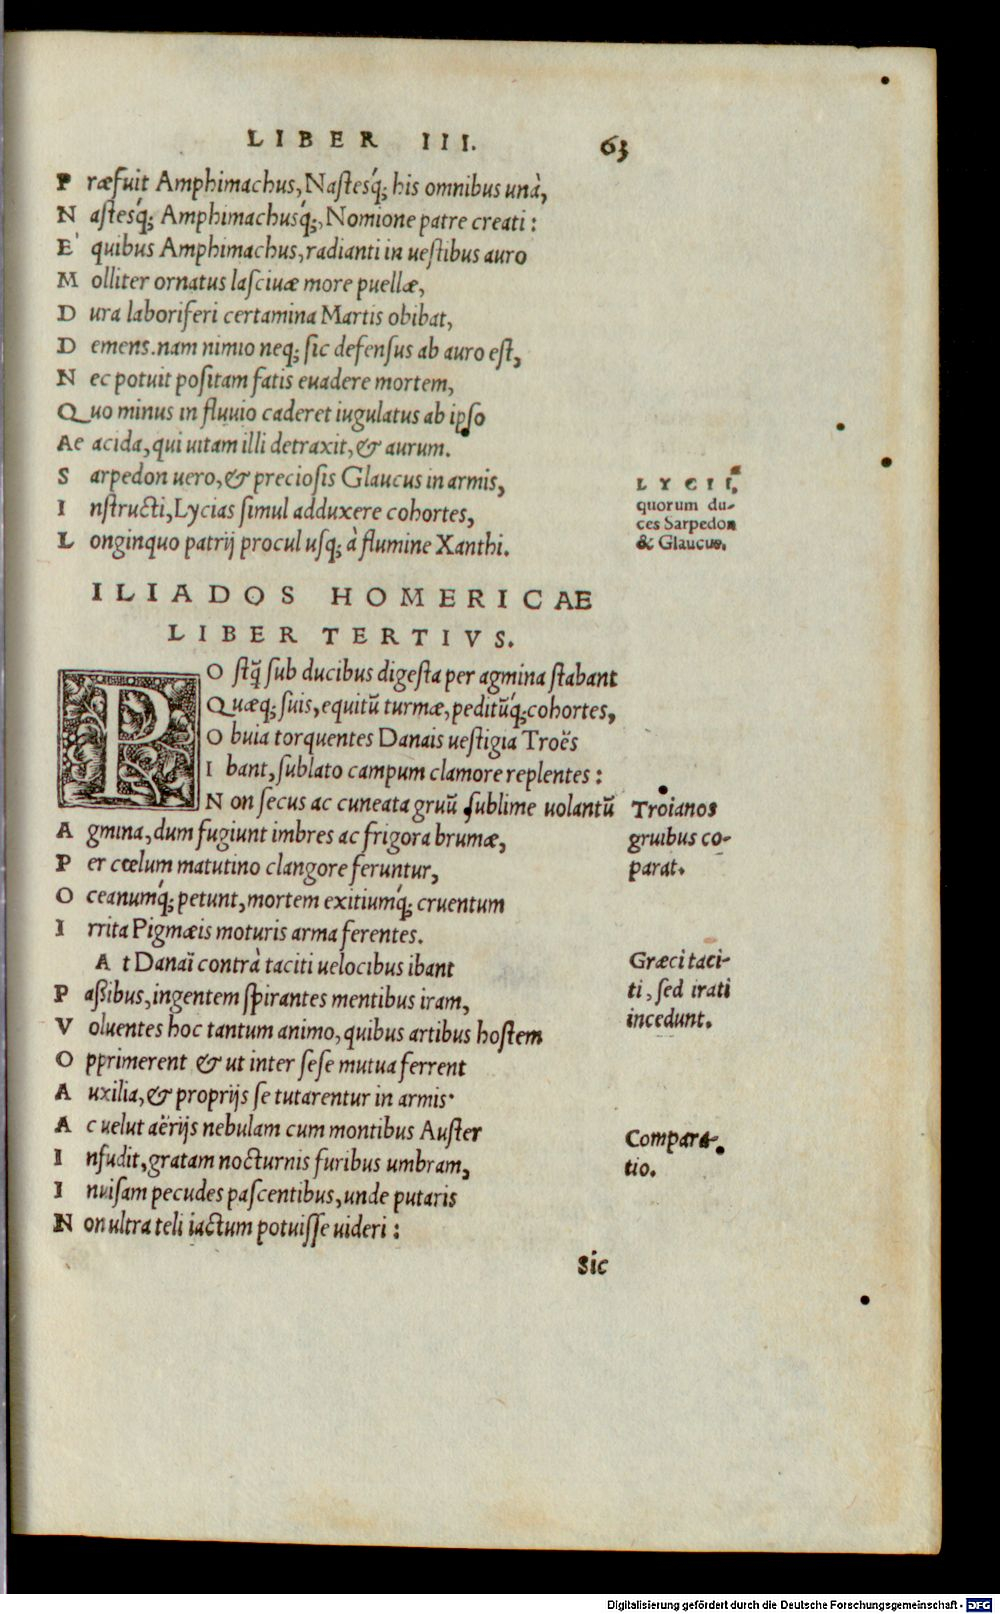 LIBER III. 63
Præfuit Amphimachus, Nastesq́; his omnibus unà,
Nastesq́; Amphimachusq́;, Nomione patre creati:
E' quibus Amphimachus, radianti in uestibus auro
Molliter ornatus lasciuæ more puellæ,
Dura laboriferi certamina Martis obibat,
Demens. nam nimio neq; sic defensus ab auro est,
Nec potuit positam fatis euadere mortem,
Quo minus in fluuio caderet iugulatus ab ipso
Aeacida, qui uitam illi detraxit, & aurum.
Sarpedon uero, & preciosis Glaucus in armis,
Instructi, Lycias simul adduxere cohortes,
Longinquo patrij procul usq; à flumine Xanthi.
LYCII,
quorum du-
ces Sarpedon
& Glaucus.
ILIADOS HOMERICAE
LIBER TERTIVS.
POstq̃ sub ducibus digesta per agmina stabant
Quæq; suis, equitũ turmæ, peditũq́; cohortes,
Obuia torquentes Danais uestigia Troës
Ibant, sublato campum clamore replentes:
Non secus ac cuneata gruũ sublime uolantũ
Agmina, dum fugiunt imbres ac frigora brumæ,
Per cœlum matutino clangore feruntur,
Oceanumq́; petunt, mortem exitiumq́; cruentum
Irrita Pigmæis moturis arma ferentes.
Troianos
gruibus co-
parat.
At Danaï contrà taciti uelocibus ibant
Paßibus, ingentem spirantes mentibus iram,
Voluentes hoc tantum animo, quibus artibus hostem
Opprimerent & ut inter sese mutua ferrent
Auxilia, & proprijs se tutarentur in armis.
Græci taci-
ti, sed irati
incedunt.
Ac uelut aërijs nebulam cum montibus Auster
Infudit, gratam nocturnis furibus umbram,
Inuisam pecudes pascentibus, unde putaris
Non ultra teli iactum potuisse uideri:
Compara-
tio.
Sic
Digitalisierung gefördert durch die Deutsche Forschungsgemeinschaft - DFG